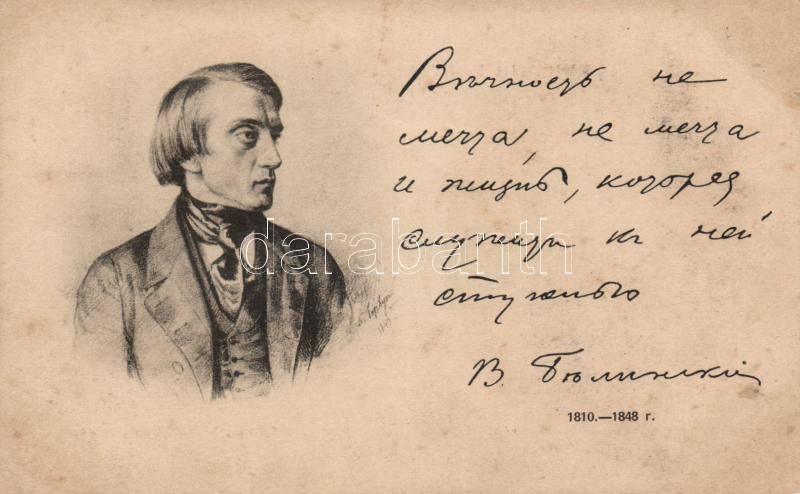 Вѣчность не
мечта, не мечта
и жизнь, которая
служитъ къ ней
ступенью
В. Бѣлинскій
1810.—1848 г.
darabanth
1843